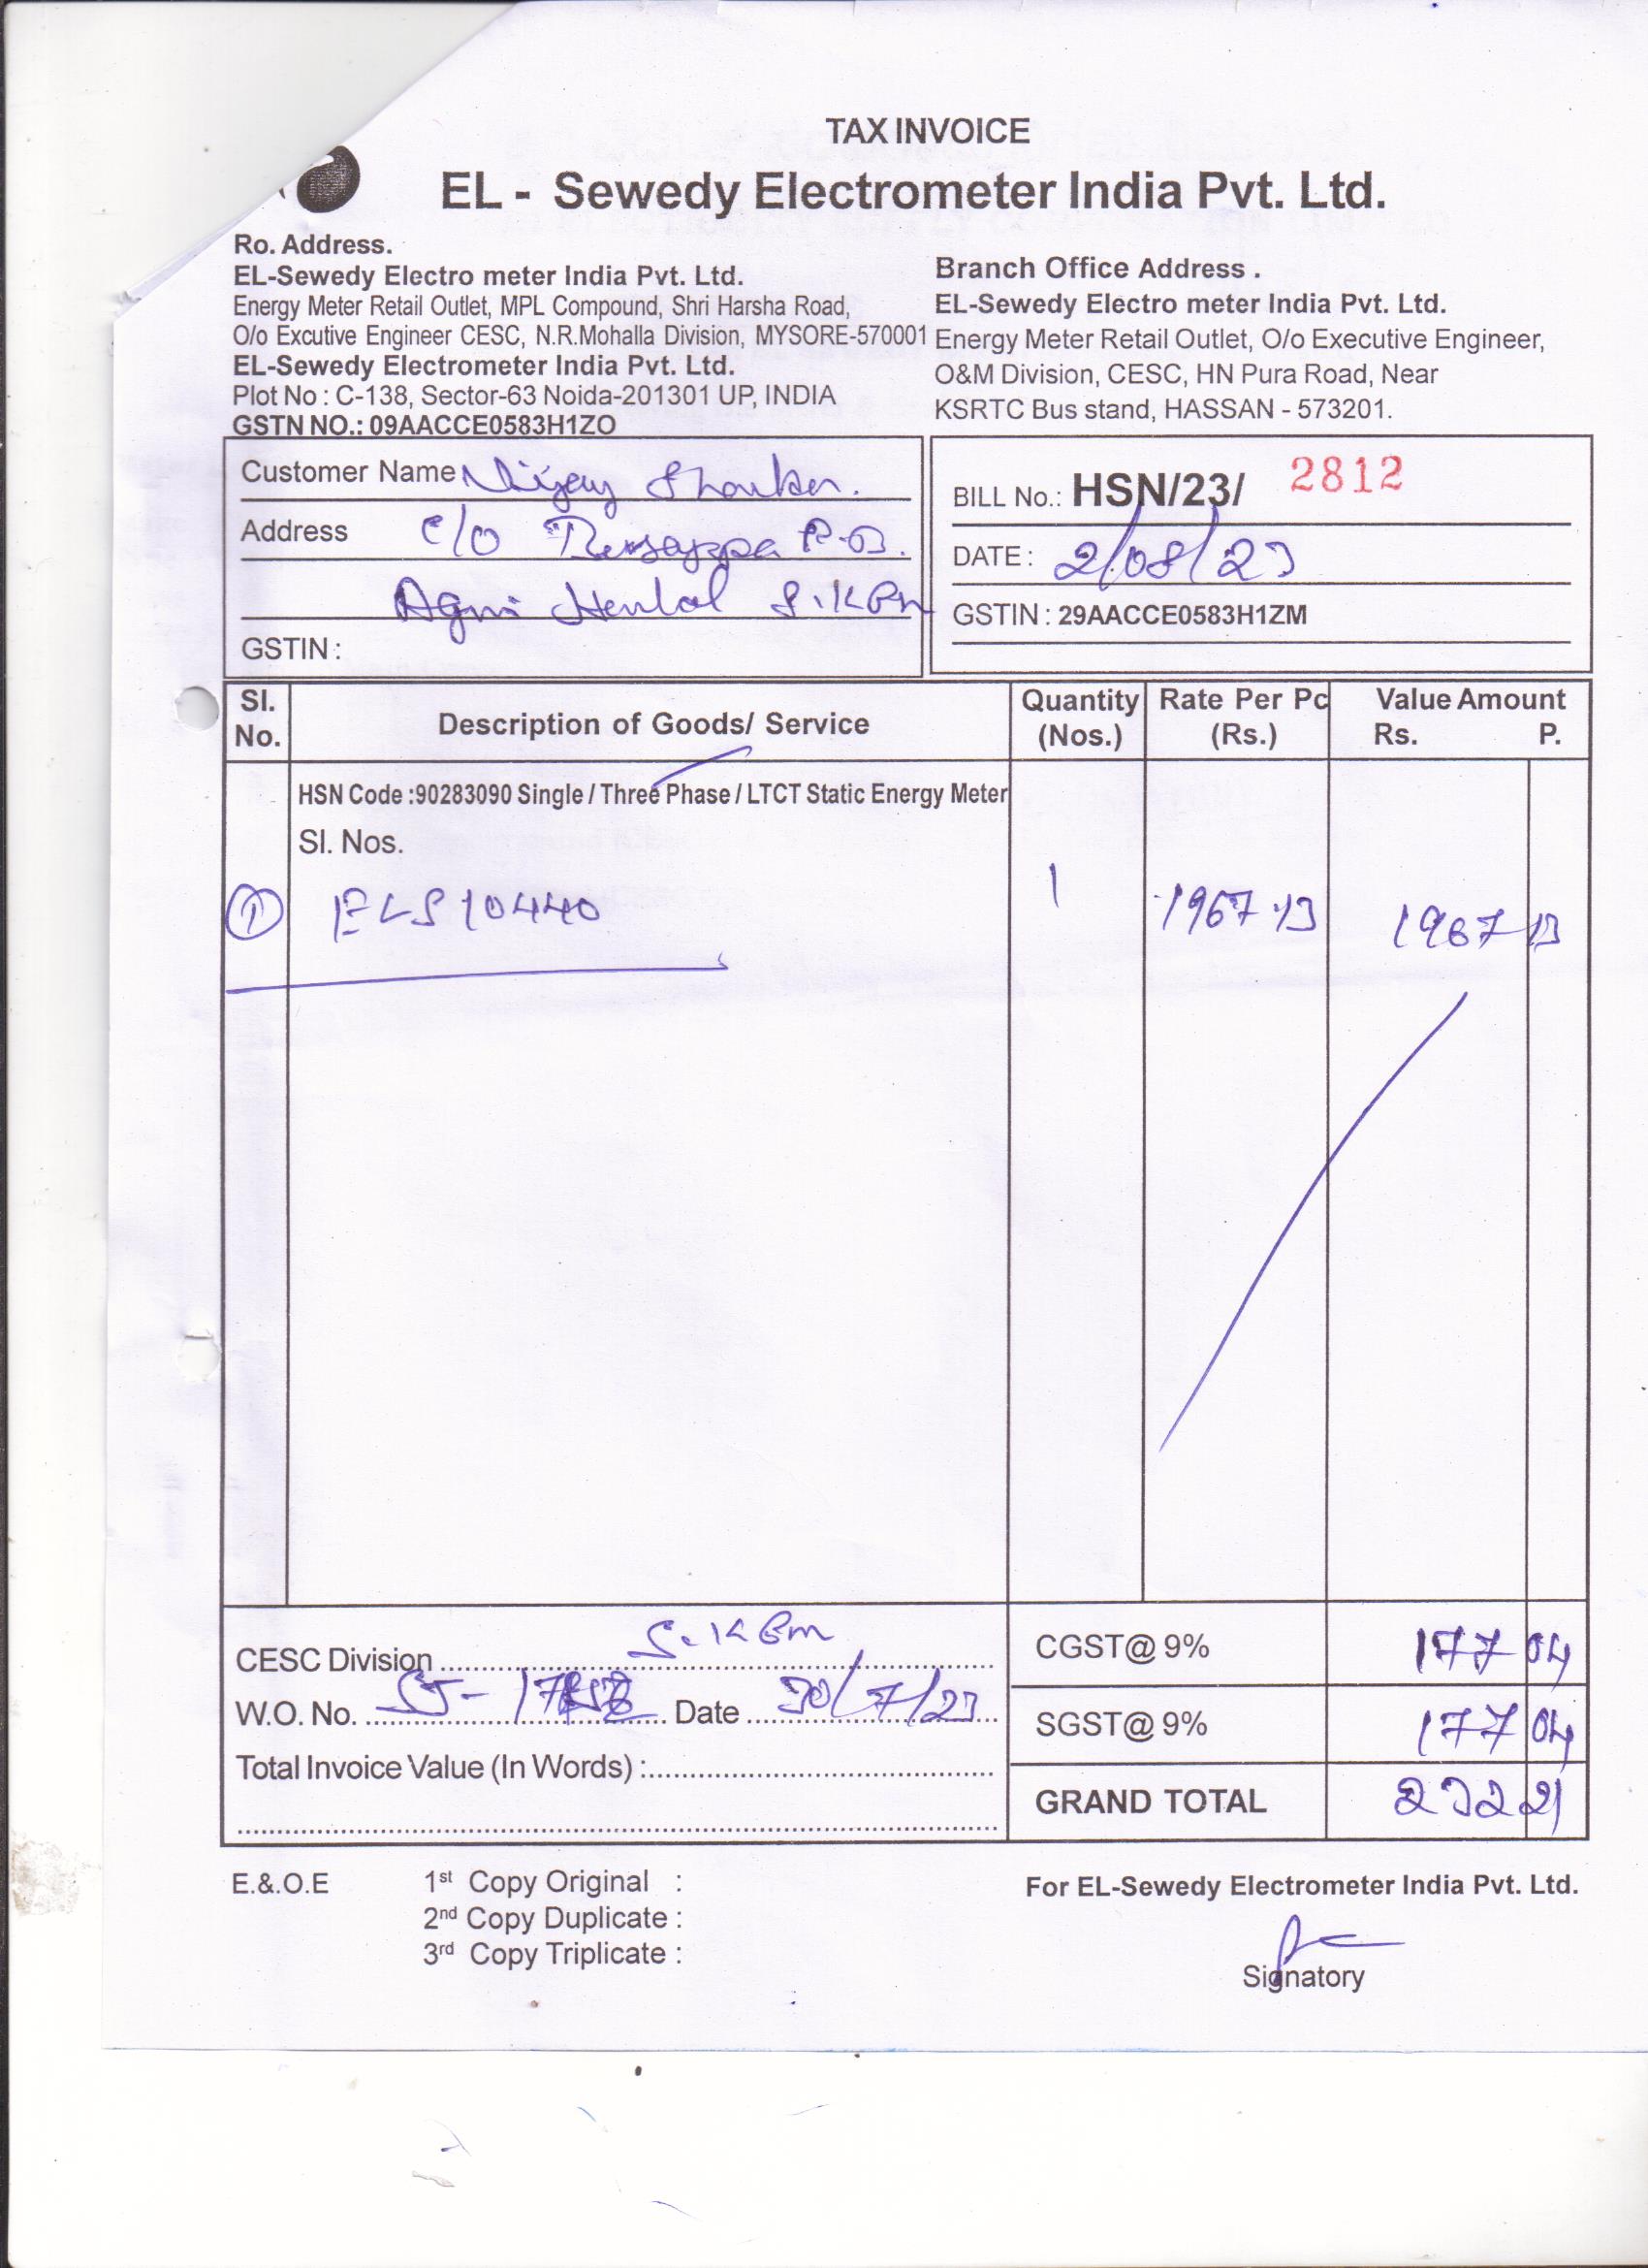 TAX INVOICE
EL - Sewedy Electrometer India Pvt. Ltd.
Ro. Address.
EL-Sewedy Electro meter India Pvt. Ltd.
Energy Meter Retail Outlet, MPL Compound, Shri Harsha Road,
O/o Excutive Engineer CESC, N.R.Mohalla Division, MYSORE-570001
EL-Sewedy Electrometer India Pvt. Ltd.
Plot No : C-138, Sector-63 Noida-201301 UP, INDIA
GSTN NO.: 09AACCE0583H1ZO
Branch Office Address .
EL-Sewedy Electro meter India Pvt. Ltd.
Energy Meter Retail Outlet, O/o Executive Engineer,
O&M Division, CESC, HN Pura Road, Near
KSRTC Bus stand, HASSAN - 573201.
Customer Name Vijay Shankar.
Address c/o
Agni S.KPm
GSTIN :
BILL No.: HSN/23/ 2812
DATE : 2/08/23
GSTIN : 29AACCE0583H1ZM
Sl. No. Description of Goods/ Service Quantity (Nos.) Rate Per Pc (Rs.) Value Amount Rs. P.
HSN Code :90283090 Single / Three Phase / LTCT Static Energy Meter
Sl. Nos.
1 ELS10440 1 1967.13 1967 13
CESC Division S.KPm
W.O. No. Date 30/7/23
Total Invoice Value (In Words) :
CGST@ 9% 177 04
SGST@ 9% 177 04
GRAND TOTAL 2322 21
E.&.O.E
1st Copy Original :
2nd Copy Duplicate :
3rd Copy Triplicate :
For EL-Sewedy Electrometer India Pvt. Ltd.
Signatory